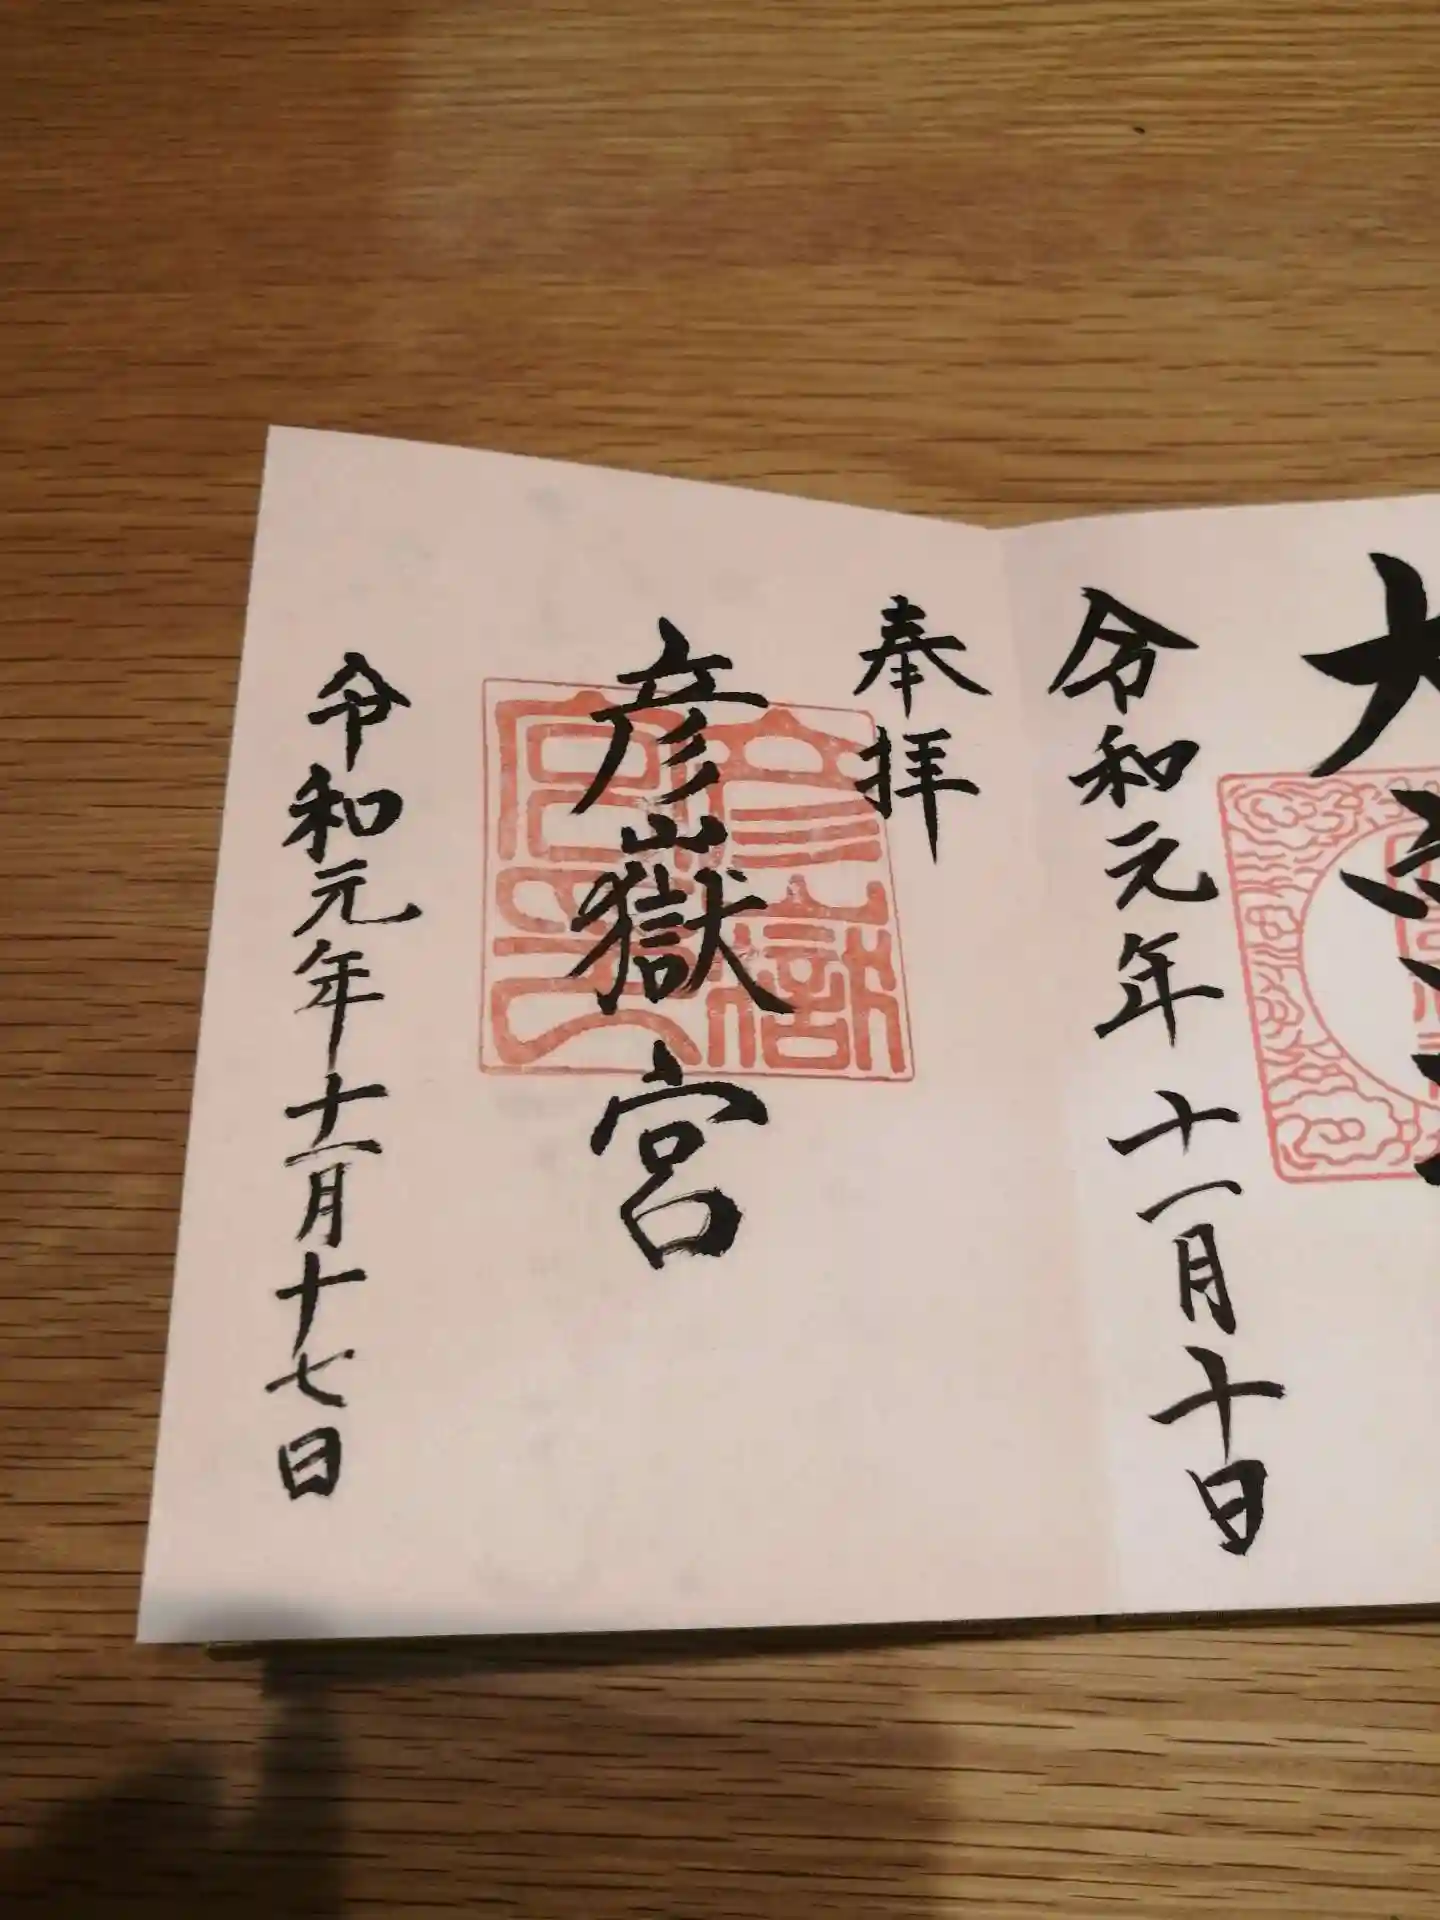 大
令和元年十一月十日
奉拝
彦嶽宮
令和元年十一月十七日